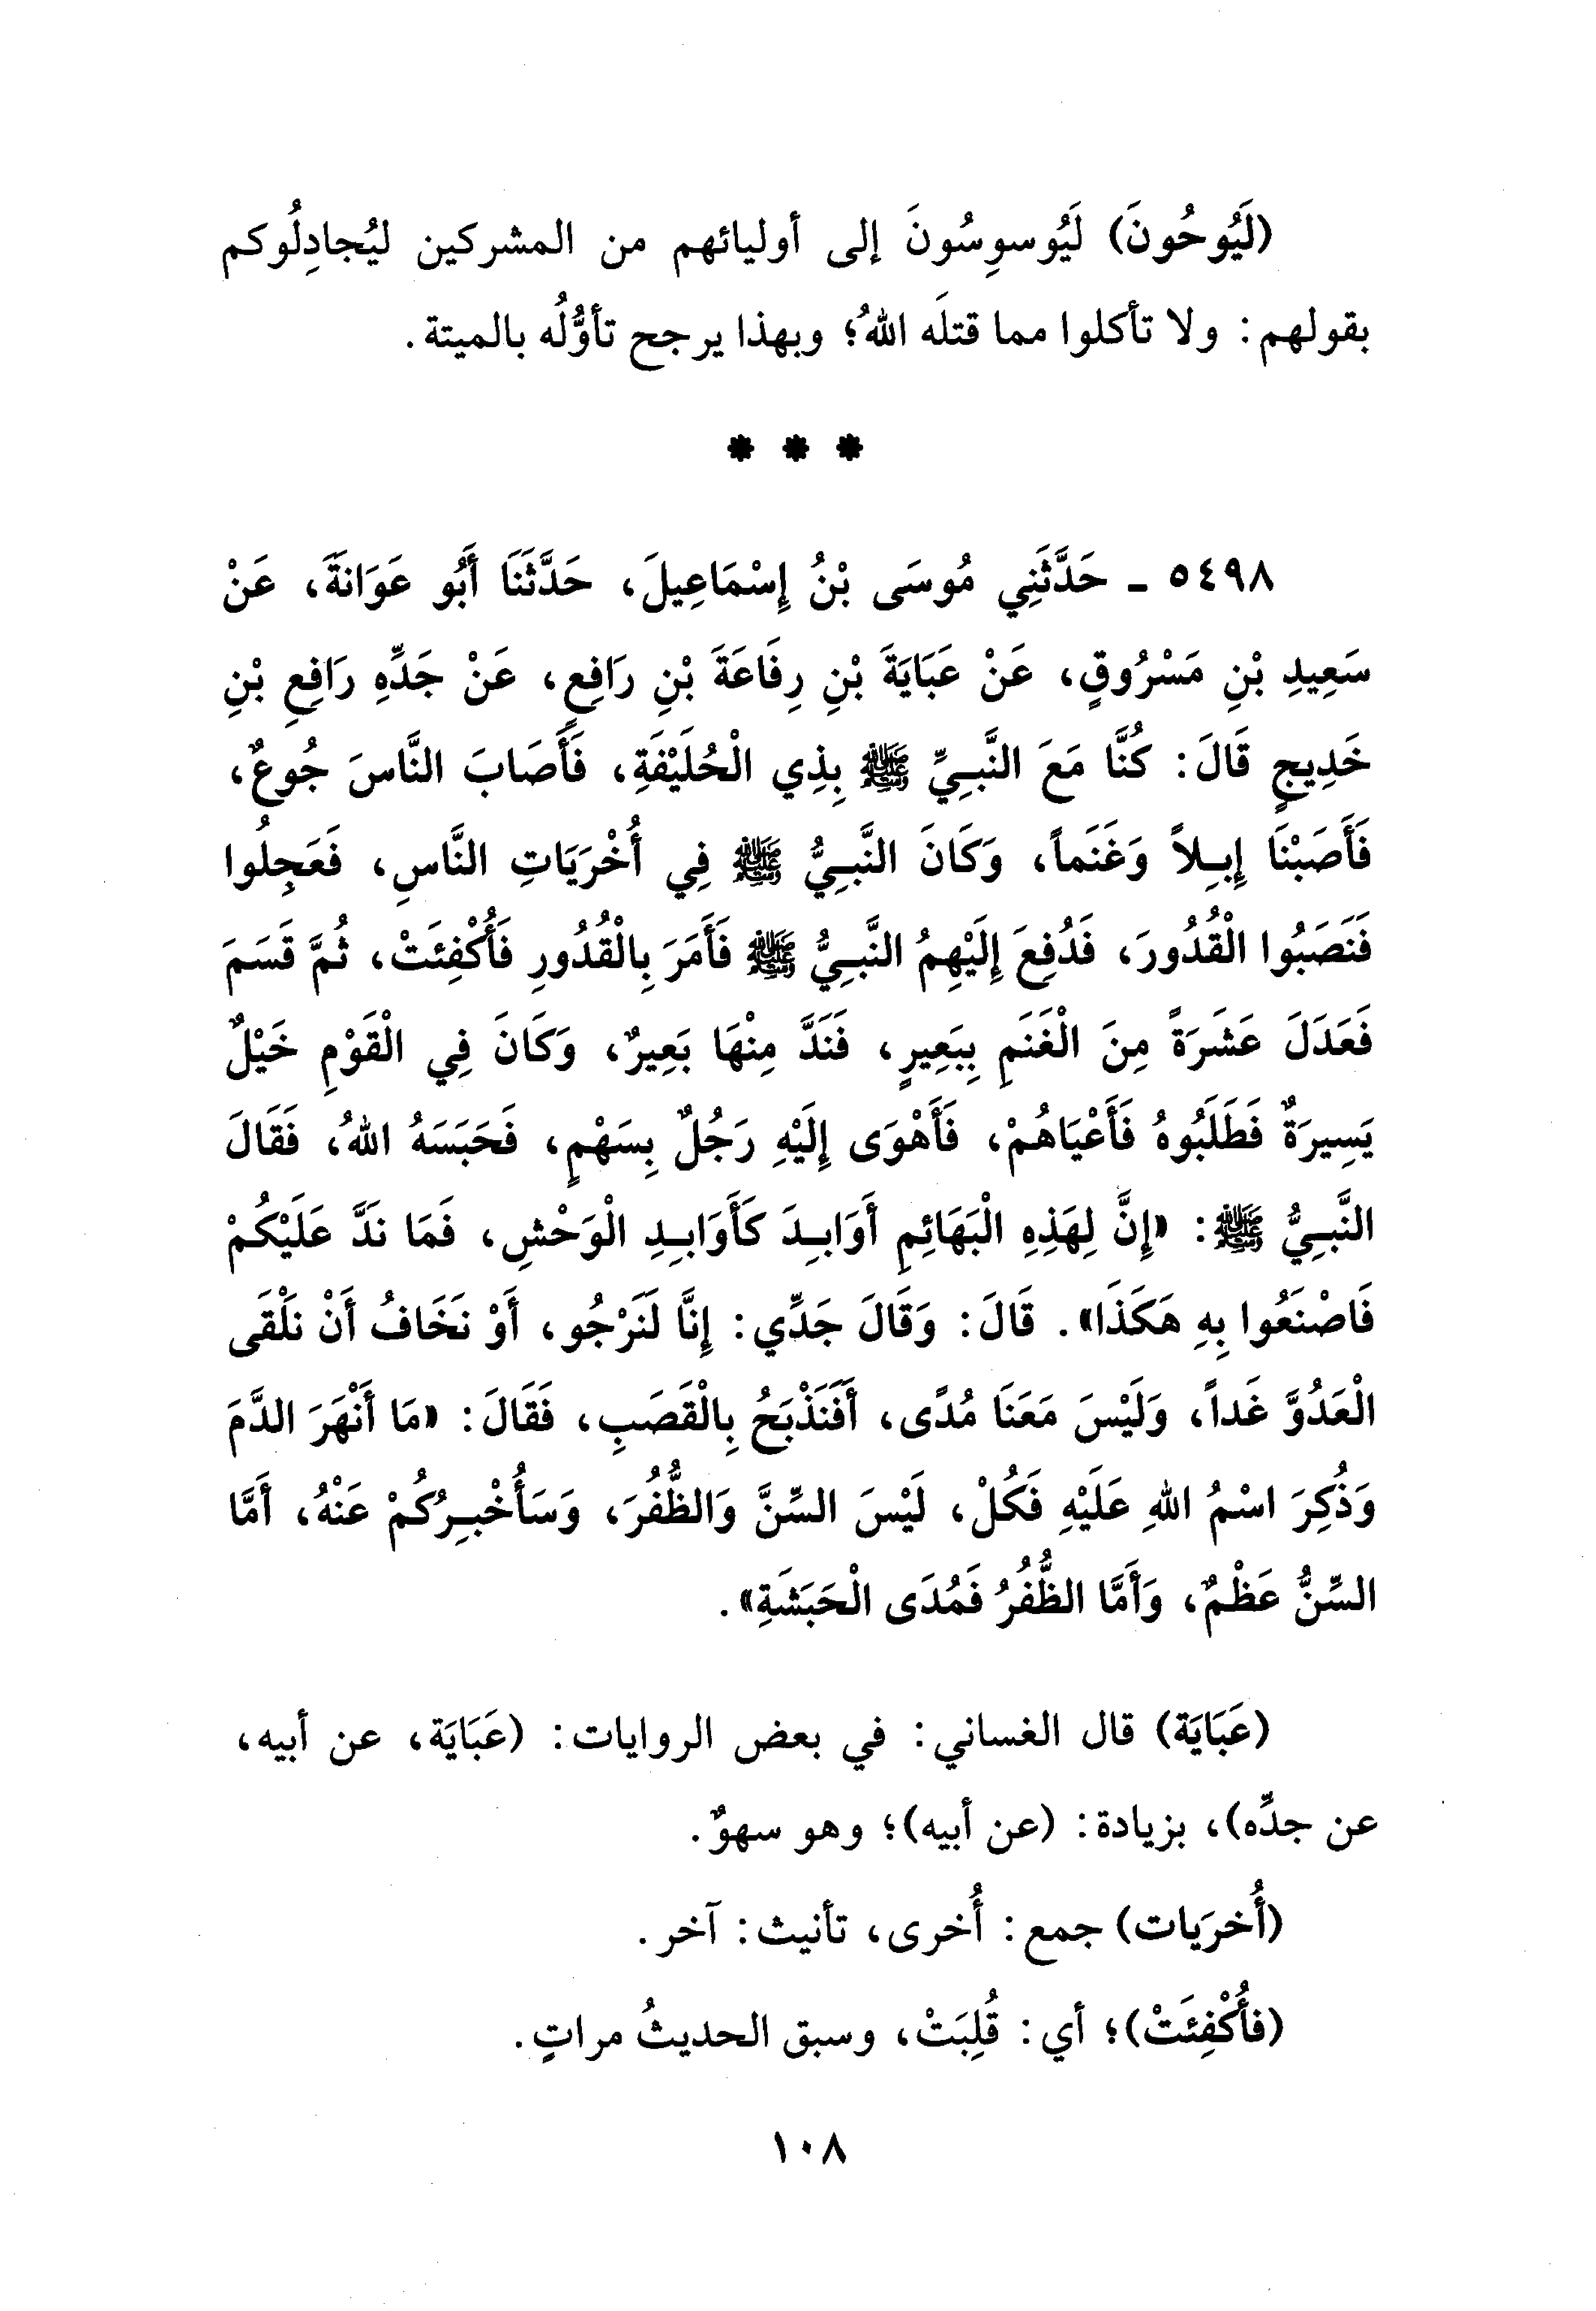 (لَيُوحُونَ) لَيُوسوِسُونَ إلى أوليائهم من المشركين ليُجادِلُوكم
بقولهم: ولا تأكلوا مما قتلَه اللهُ؛ وبهذا يرجح تأوُّلُه بالميتة.
* * *
٥٤٩٨ - حَدَّثَنِي مُوسَى بْنُ إِسْمَاعِيلَ، حَدَّثَنَا أَبُو عَوَانَةَ، عَنْ
سَعِيدِ بْنِ مَسْرُوقٍ، عَنْ عَبَايَةَ بْنِ رِفَاعَةَ بْنِ رَافِعٍ، عَنْ جَدِّهِ رَافِعِ بْنِ
خَدِيجٍ قَالَ: كُنَّا مَعَ النَّبِيِّ ﷺ بِذِي الْحُلَيْفَةِ، فَأَصَابَ النَّاسَ جُوعٌ،
فَأَصَبْنَا إِبِلاً وَغَنَماً، وَكَانَ النَّبِيُّ ﷺ فِي أُخْرَيَاتِ النَّاسِ، فَعَجِلُوا
فَنَصَبُوا الْقُدُورَ، فَدُفِعَ إِلَيْهِمُ النَّبِيُّ ﷺ فَأَمَرَ بِالْقُدُورِ فَأُكْفِئَتْ، ثُمَّ قَسَمَ
فَعَدَلَ عَشَرَةً مِنَ الْغَنَمِ بِبَعِيرٍ، فَنَدَّ مِنْهَا بَعِيرٌ، وَكَانَ فِي الْقَوْمِ خَيْلٌ
يَسِيرَةٌ فَطَلَبُوهُ فَأَعْيَاهُمْ، فَأَهْوَى إِلَيْهِ رَجُلٌ بِسَهْمٍ، فَحَبَسَهُ اللهُ، فَقَالَ
النَّبِيُّ ﷺ: «إِنَّ لِهَذِهِ الْبَهَائِمِ أَوَابِدَ كَأَوَابِدِ الْوَحْشِ، فَمَا نَدَّ عَلَيْكُمْ
فَاصْنَعُوا بِهِ هَكَذَا». قَالَ: وَقَالَ جَدِّي: إِنَّا لَنَرْجُو، أَوْ نَخَافُ أَنْ نَلْقَى
الْعَدُوَّ غَداً، وَلَيْسَ مَعَنَا مُدًى، أَفَنَذْبَحُ بِالْقَصَبِ، فَقَالَ: «مَا أَنْهَرَ الدَّمَ
وَذُكِرَ اسْمُ اللهِ عَلَيْهِ فَكُلْ، لَيْسَ السِّنَّ وَالظُّفُرَ، وَسَأُخْبِرُكُمْ عَنْهُ، أَمَّا
السِّنُّ عَظْمٌ، وَأَمَّا الظُّفُرُ فَمُدَى الْحَبَشَةِ».
(عَبَايَة) قال الغساني: في بعض الروايات: (عَبَايَة، عن أبيه،
عن جدِّه)، بزيادة: (عن أبيه)؛ وهو سهوٌ.
(أُخرَيات) جمع: أُخرى، تأنيث: آخر.
(فأُكْفِئَتْ)؛ أي: قُلِبَتْ، وسبق الحديثُ مراتٍ.
١٠٨